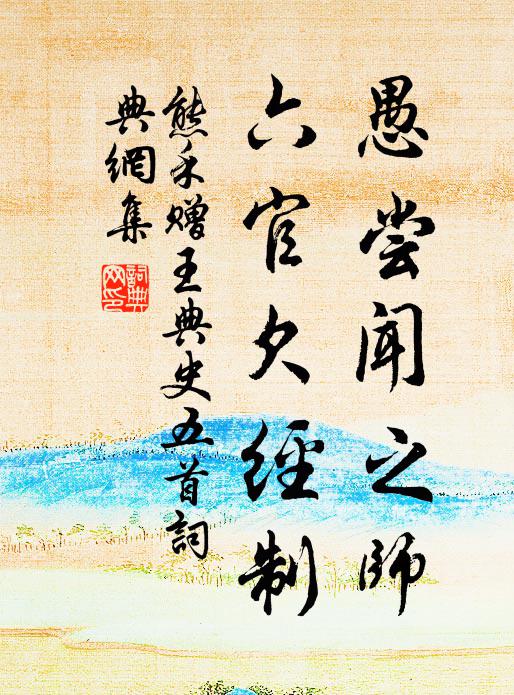 愚尝闻之師
六官久經制
熊禾贈王典史五首詞
典網集
詞典
网印